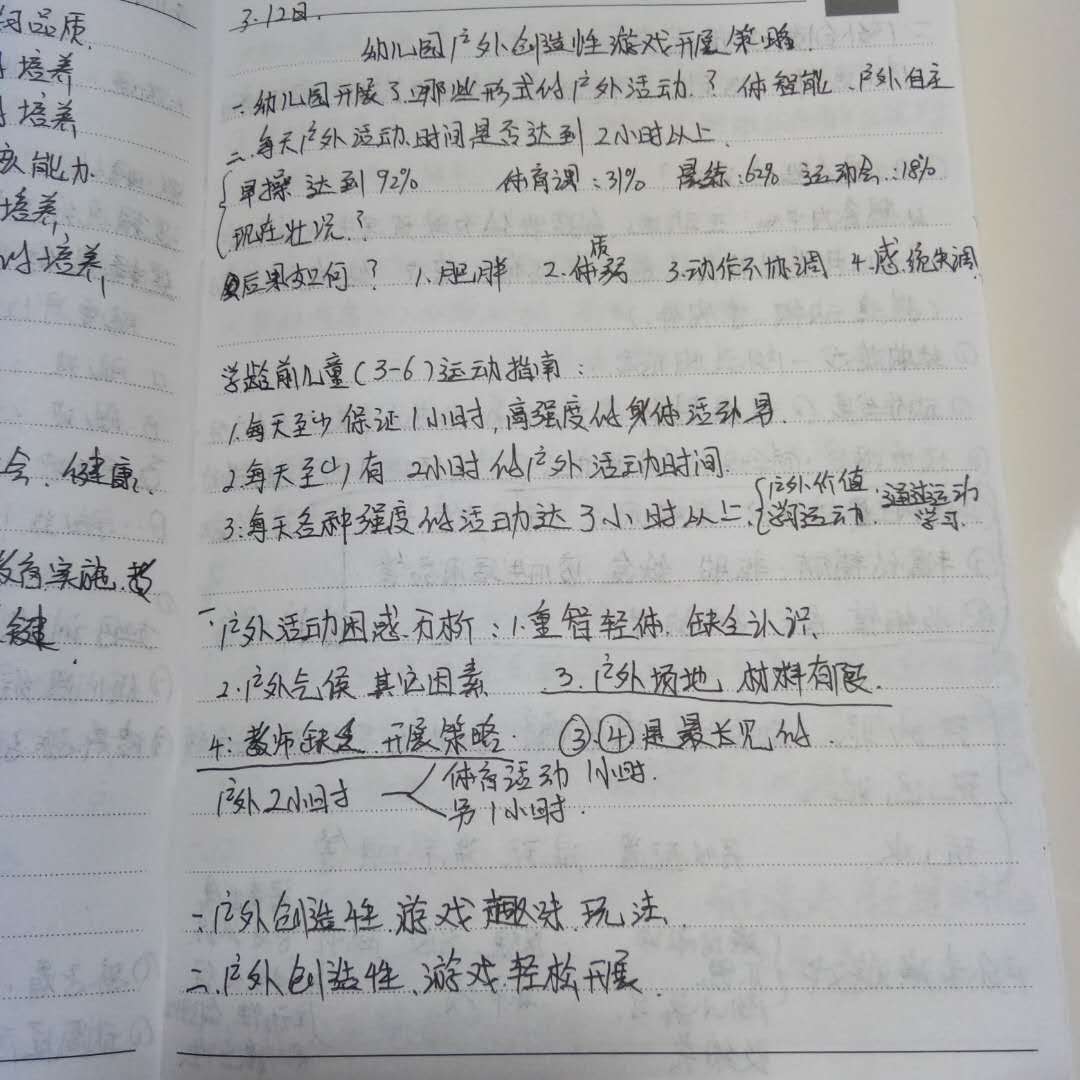 的品质.
培养
培养
能力.
培养,
培养,
3.12日.
幼儿园户外创造性游戏开展策略.
一.幼儿园开展了哪些形式的户外活动.? 体智能、户外自主
二.每天户外活动时间是否达到2小时以上.
早操达到92% 体育课:31% 晨练:62% 运动会:18%
现在状况?
后果如何? 1.肥胖 2.体质弱 3.动作不协调 4.感统失调.
学龄前儿童(3-6)运动指南:
1.每天至少保证1小时,高强度的身体活动量.
2.每天至少有2小时的户外活动时间.
3.每天各种强度的活动达3小时以上.
户外价值:通过运动
学习运动. 学习.
健康.
育实施.
键.
一.户外活动困惑分析:1.重智轻体.缺乏认识.
2.户外气候 其它因素 3.户外场地,材料有限.
4.教师缺乏开展策略. ③④是最长见的.
户外2小时
体育活动1小时.
另1小时.
一.户外创造性游戏趣味玩法.
二.户外创造性游戏轻松开展.